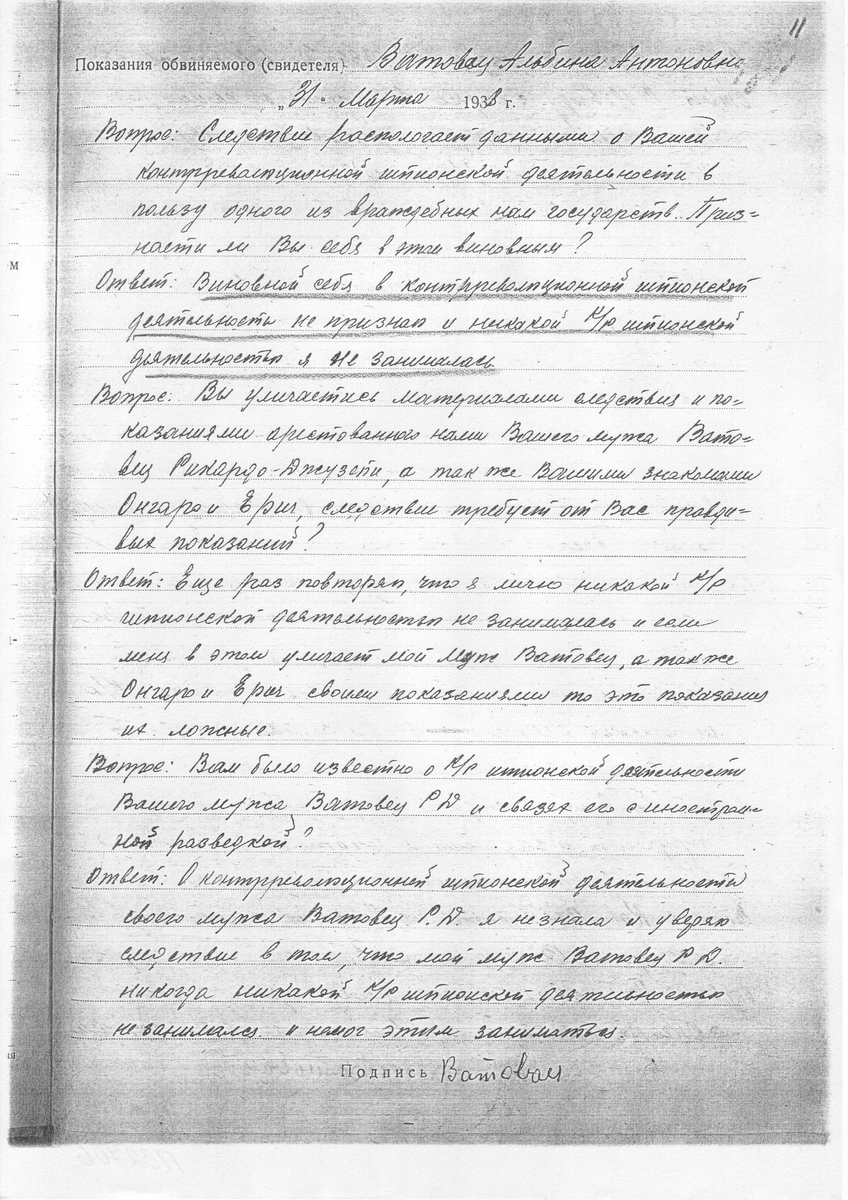 11
Показания обвиняемого (свидетеля) Ватовац Альбина Антоновна
„31" Марта 1938 г.
Вопрос: Следствие распологает данными о Вашей
контрреволюционной шпионской деятельности в
пользу одного из враждебных нам государств. Приз=
наете ли Вы себя в этом виновным?
Ответ: Виновной себя в контрреволюционной шпионской
деятельности не признаю и никакой К/р шпионской
деятельностью я не занималась.
Вопрос: Вы уличаетись материалами следствия и по=
казаниями арестованного нами Вашего мужа Вато=
вец Рикардо-Джузепи, а так же Вашими знакомыми
Онгаро и Ерич, следствие требует от Вас правди=
вых показаний?
Ответ: Еще раз повторяю, что я лично никакой К/р
шпионской деятельностью не занималась и если
меня в этом уличает мой муж Ватовец, а так же
Онгаро и Ерич своими показаниями то это показания
их ложные.
Вопрос: Вам было известно о К/р шпионской деятельности
Вашего мужа Ватовец Р Д и связях его с иностран-
ной разведкой?
Ответ: О контрреволюционной шпионской деятельности
своего мужа Ватовец Р.Д. я не знала и уверяю
следствие в том, что мой муж Ватовец Р Д.
никогда никакой К/р шпионской деятельностью
не занимался и не мог этим заниматься.
Подпись Ватовац